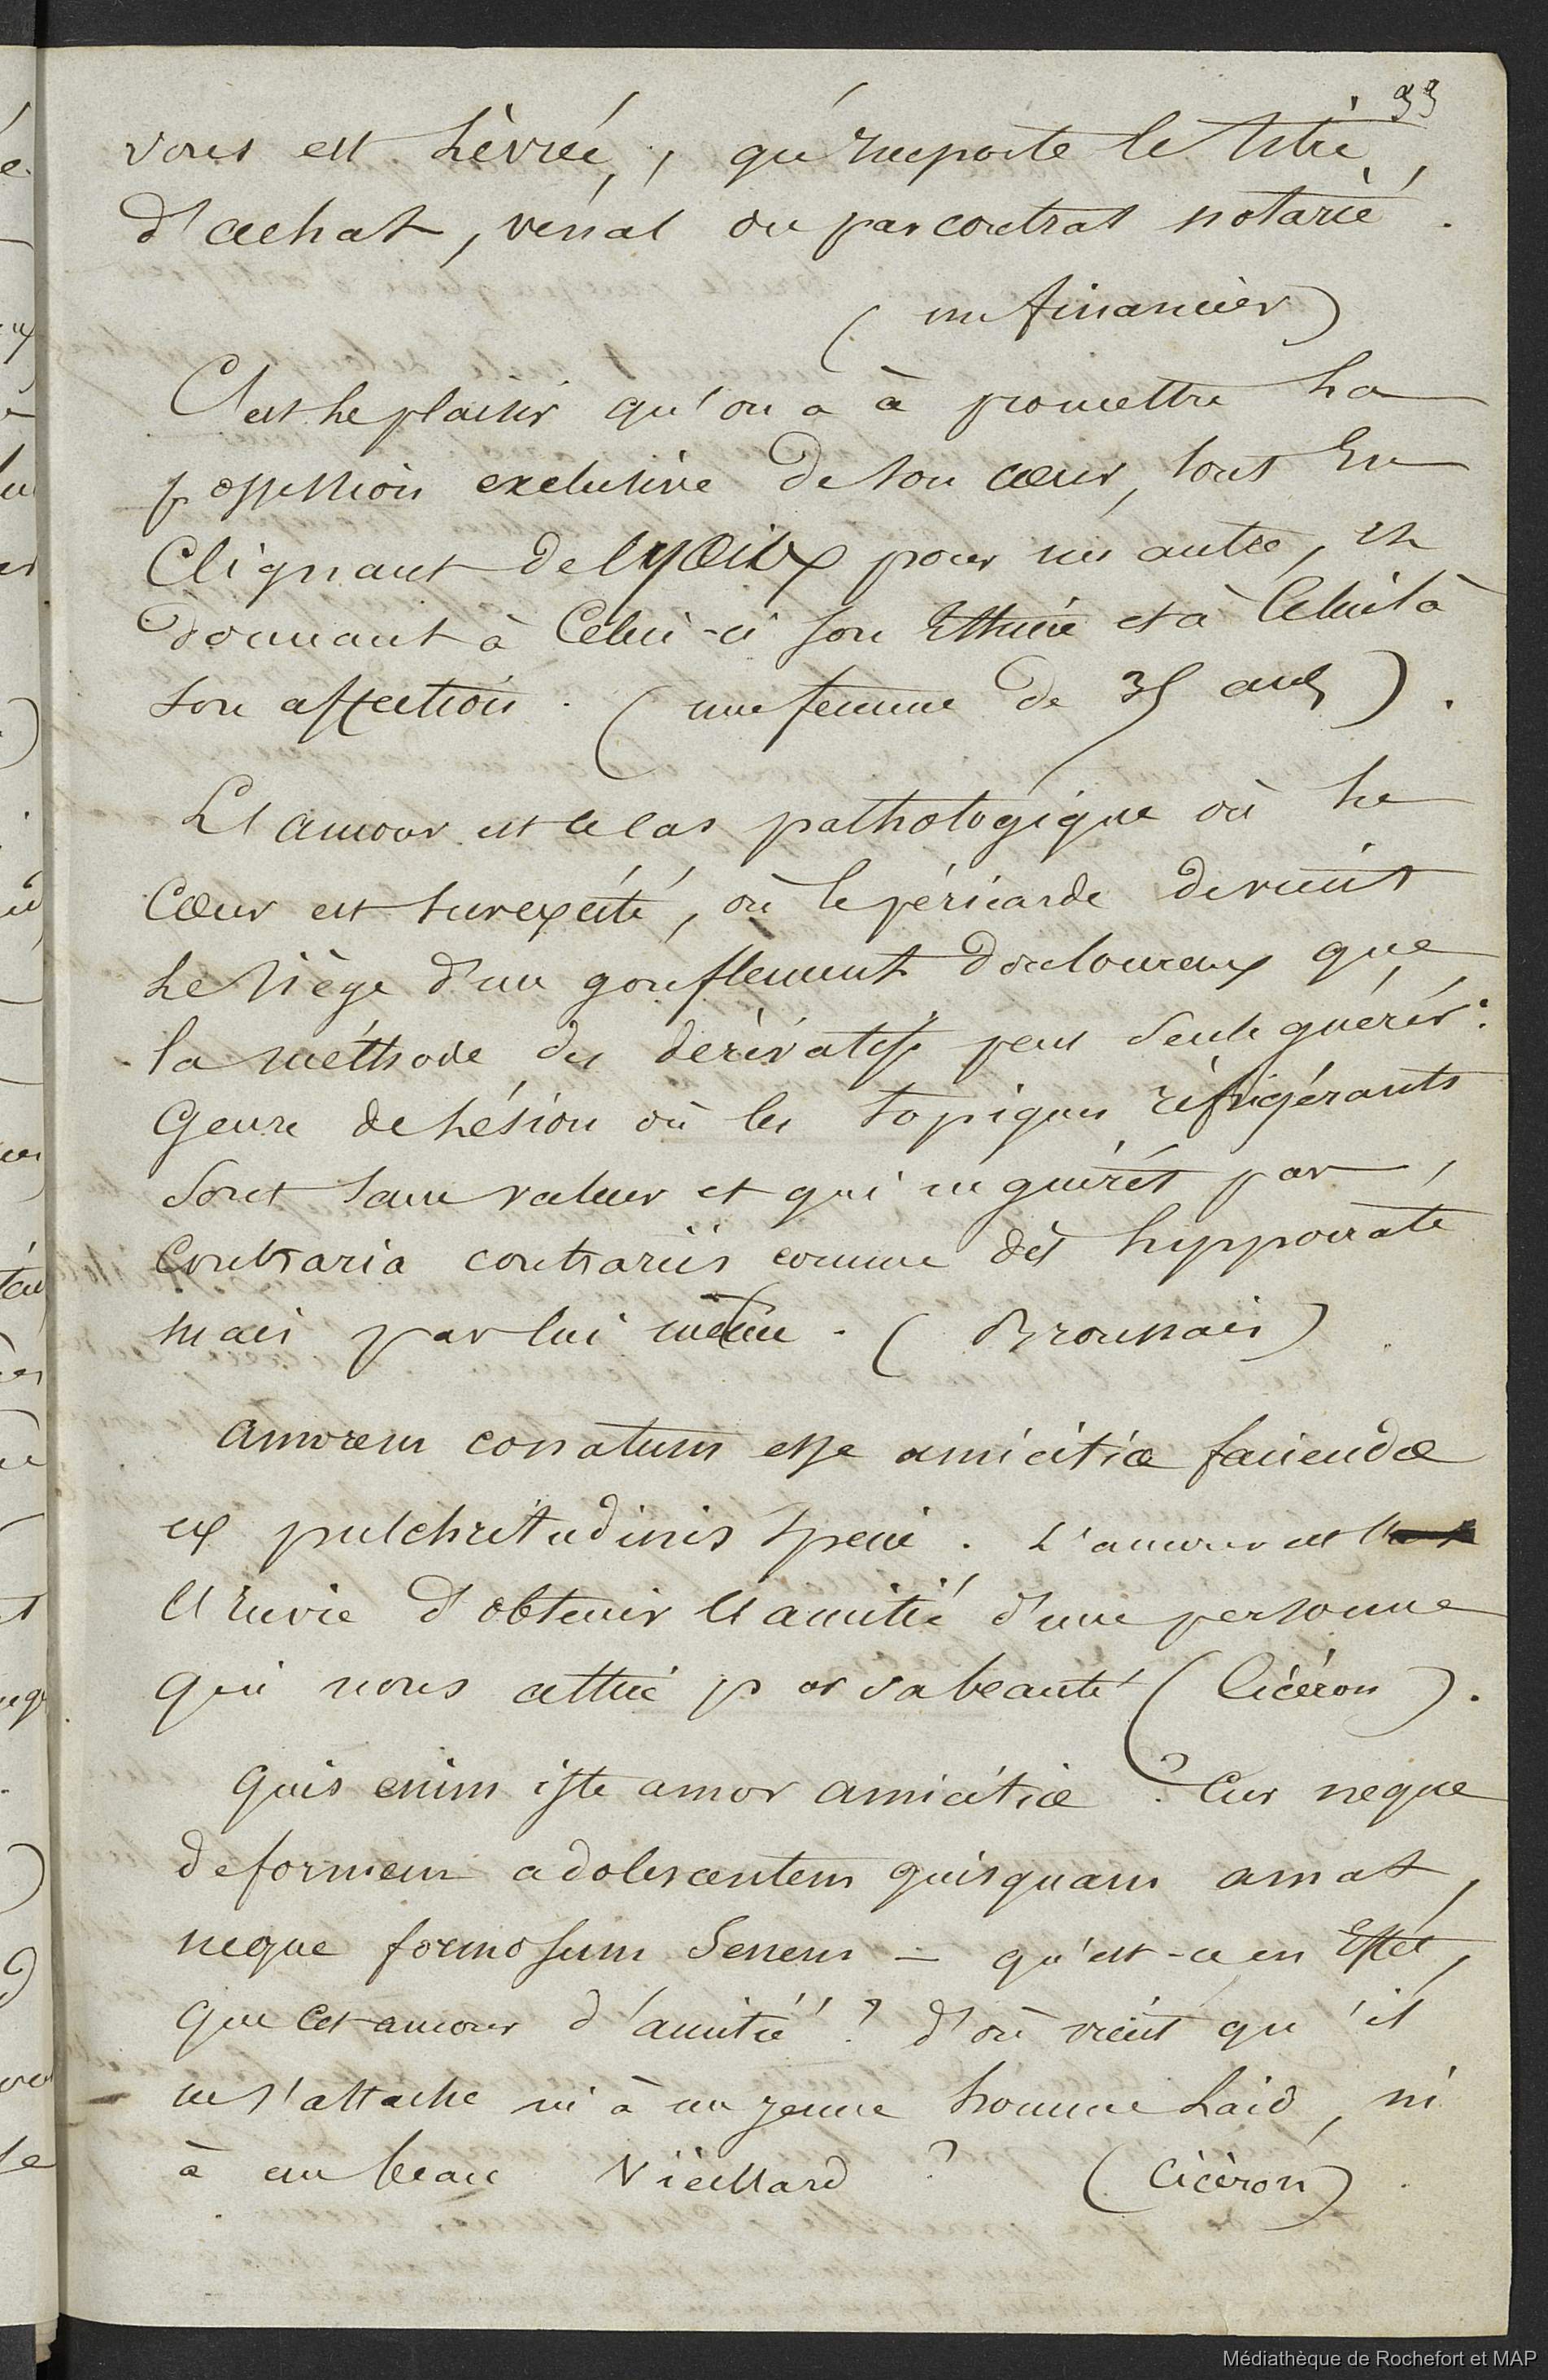 33
vous est livrée, qu'importe le titre,
d'achat, vénal ou par contrat notarié.
(un financier)
C'est le plaisir qu'on a à promettre la
possession exclusive de son cœur, tout en
clignant de l'œil pour un autre, en
donnant à celui-ci son estime et à celui là
son affection. (une femme de 35 ans).
L'amour est le cas pathologique où le
cœur est surexcité, où le péricarde devient
le siège d'un gonflement douloureux que
la méthode des dérivatifs peut seule guérir.
Genre de lésion où les topiques réfrigérants
sont sans valeur et qui ne guérit par
contraria contrariis comme dit hyppocrate
mais par lui même. (Broussais)
amorem conatum esse amicitiæ faciendæ
ex pulchritudinis specie. L'amour est
l'envie d'obtenir l'amitié d'une personne
qui nous attire par sa beauté (Cicéron).
Quis enim iste amor amicitiæ? Cur neque
deformem adolescentem quisquam amat,
neque formosum senem – qu'est-ce en effet,
que cet amour d'amitié? d'où vient qu'il
ne s'attache ni à un jeune homme laid, ni
à un beau vieillard? (Cicéron).
Médiathèque de Rochefort et MAP